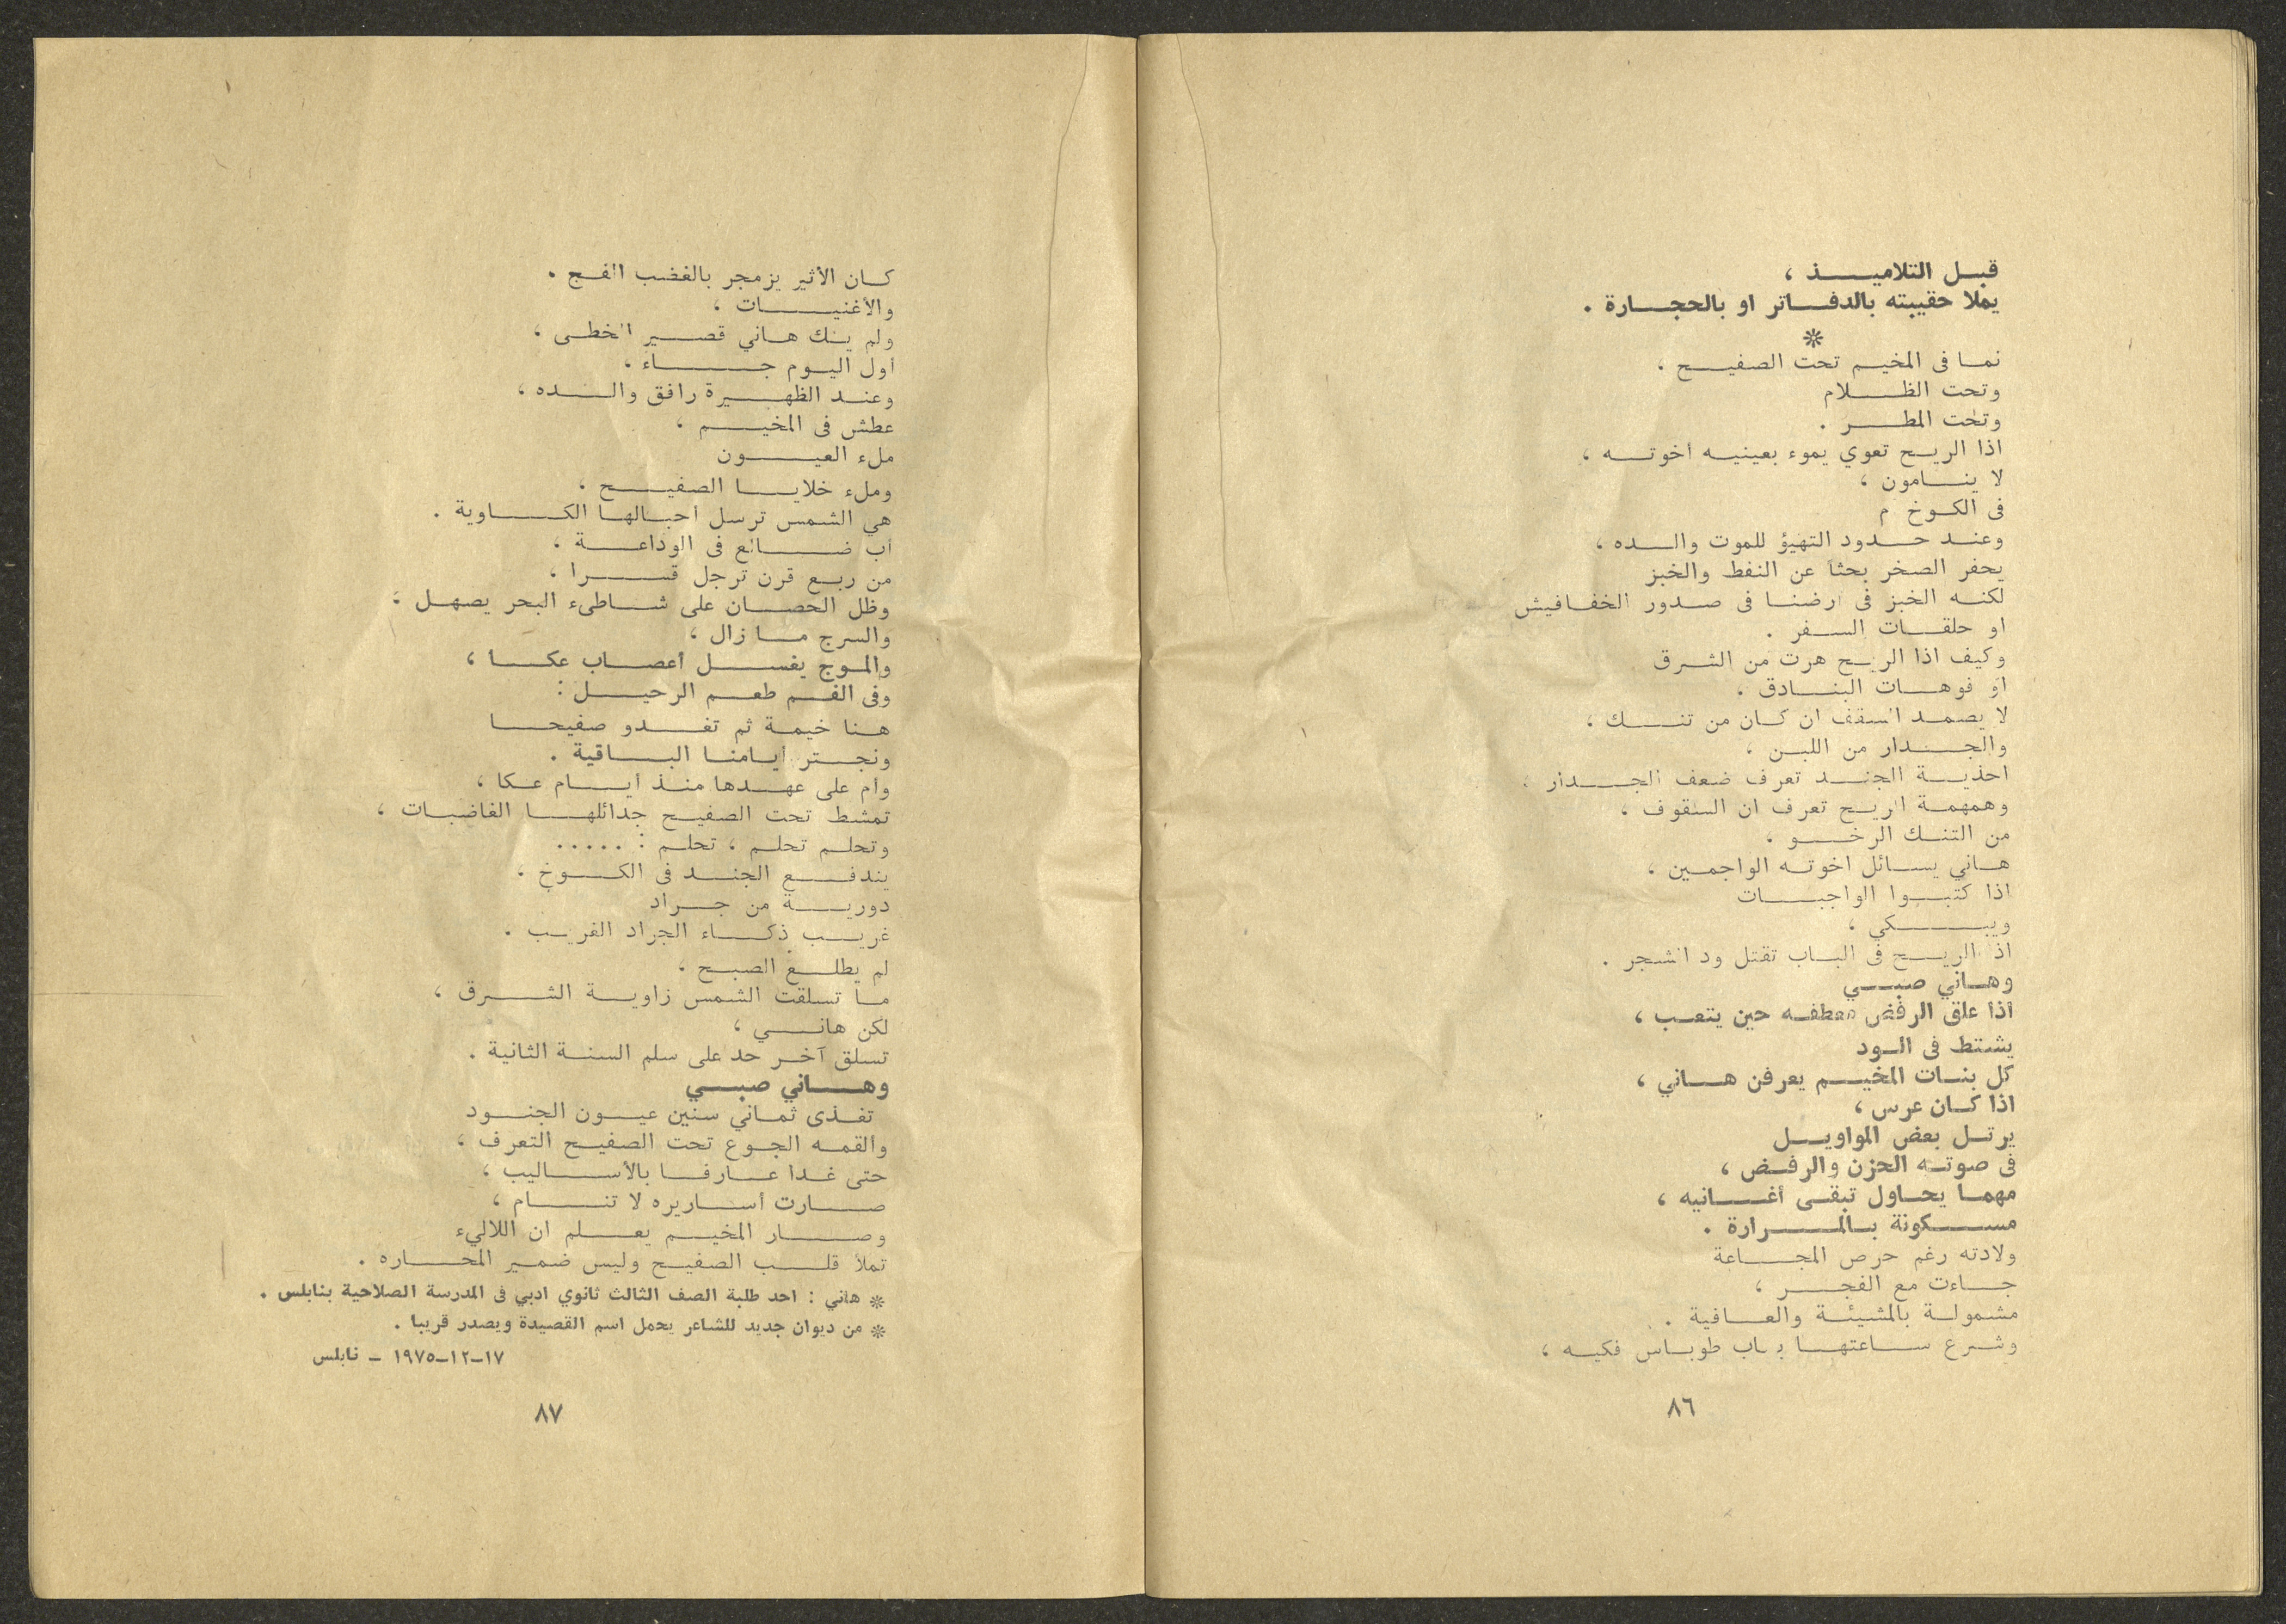 قبل التلاميذ ،
يملا حقيبته بالدفاتر او بالحجارة .
*
نما فى المخيم تحت الصفيح .
وتحت الظلام
وتحت المطر .
اذا الريح تعوي يموء بعينيه أخوته ،
لا ينامون ،
فى الكوخ م
وعند حدود التهيؤ للموت والده ،
يحفر الصخر بحثا عن النفط والخبز
لكنه الخبز فى ارضنا فى صدور الخفافيش
او حلقات السفر .
وكيف اذا الريح هرت من الشرق
او فوهات البنادق .
لا يصمد السقف ان كان من تنك ،
والجدار من اللبن ،
احذية الجند تعرف ضعف الجدار ،
وهمهمة الريح تعرف ان السقوف ،
من التنك الرخو ،
هاني يسائل اخوته الواجمين ،
اذا كتبوا الواجبات
ويبكي ،
اذ الريح فى الباب تقتل ود الشجر .
وهاني صبي
أذا علق الرفض معطفه حين يتعب ،
يشتط فى الود
كل بنات المخيم يعرفن هاني ،
اذا كان عرس ،
يرتل بعض المواويل
فى صوته الحزن والرفض ،
مهما يحاول تبقى أغانيه ،
مسكونة بالمرارة .
ولادته رغم حرص المجاعة
جاءت مع الفجر ،
مشمولة بالمشيئة والعافية .
وشرع ساعتها باب طوباس فكيه ،
٨٦
كان الأثير يزمجر بالغضب الفج .
والأغنيات ،
ولم يك هاني قصير الخطى ،
أول اليوم جاء ،
وعند الظهيرة رافق والده ،
عطش فى المخيم ،
ملء العيون
وملء خلايا الصفيح .
هي الشمس ترسل أحبالها الكاوية .
أب ضائع فى الوداعة .
من ربع قرن ترجل قسرا ،
وظل الحصان على شاطىء البحر يصهل ،
والسرج ما زال ،
والموج يغسل أعصاب عكا ،
وفى الفم طعم الرحيل :
هنا خيمة ثم تغدو صفيحا
ونجتر أيامنا الباقية .
وأم على عهدها منذ أيام عكا ،
تمشط تحت الصفيح جدائلها الغاضبات ،
وتحلم تحلم ، تحلم : .....
يندفع الجند فى الكوخ ،
دورية من جراد
غريب ذكاء الجراد الغريب .
لم يطلع الصبح ،
ما تسلقت الشمس زاوية الشرق ،
لكن هاني ،
تسلق آخر حد على سلم السنة الثانية .
وهاني صبي
تغذى ثماني سنين عيون الجنود
والقمه الجوع تحت الصفيح التعرف ،
حتى غدا عارفا بالأساليب ،
صارت أساريره لا تنام ،
وصار المخيم يعلم ان اللاليء
تملأ قلب الصفيح وليس ضمير المحاره .
* هاني : احد طلبة الصف الثالث ثانوي ادبي فى المدرسة الصلاحية بنابلس .
* من ديوان جديد للشاعر يحمل اسم القصيدة ويصدر قريبا .
١٧-١٢-١٩٧٥ - نابلس
٨٧